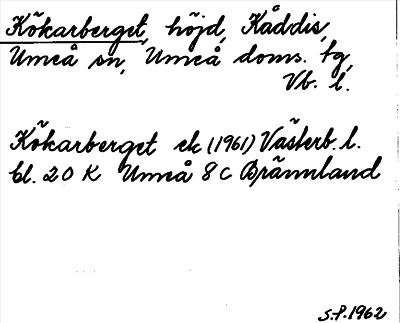 Kökarberget, höjd, Kåddis,
Umeå sn, Umeå doms. tg,
Vb. l.
Kökarberget ek (1961) Västerb. l.
bl. 20 K Umeå 8 C Brännland
S.P. 1962